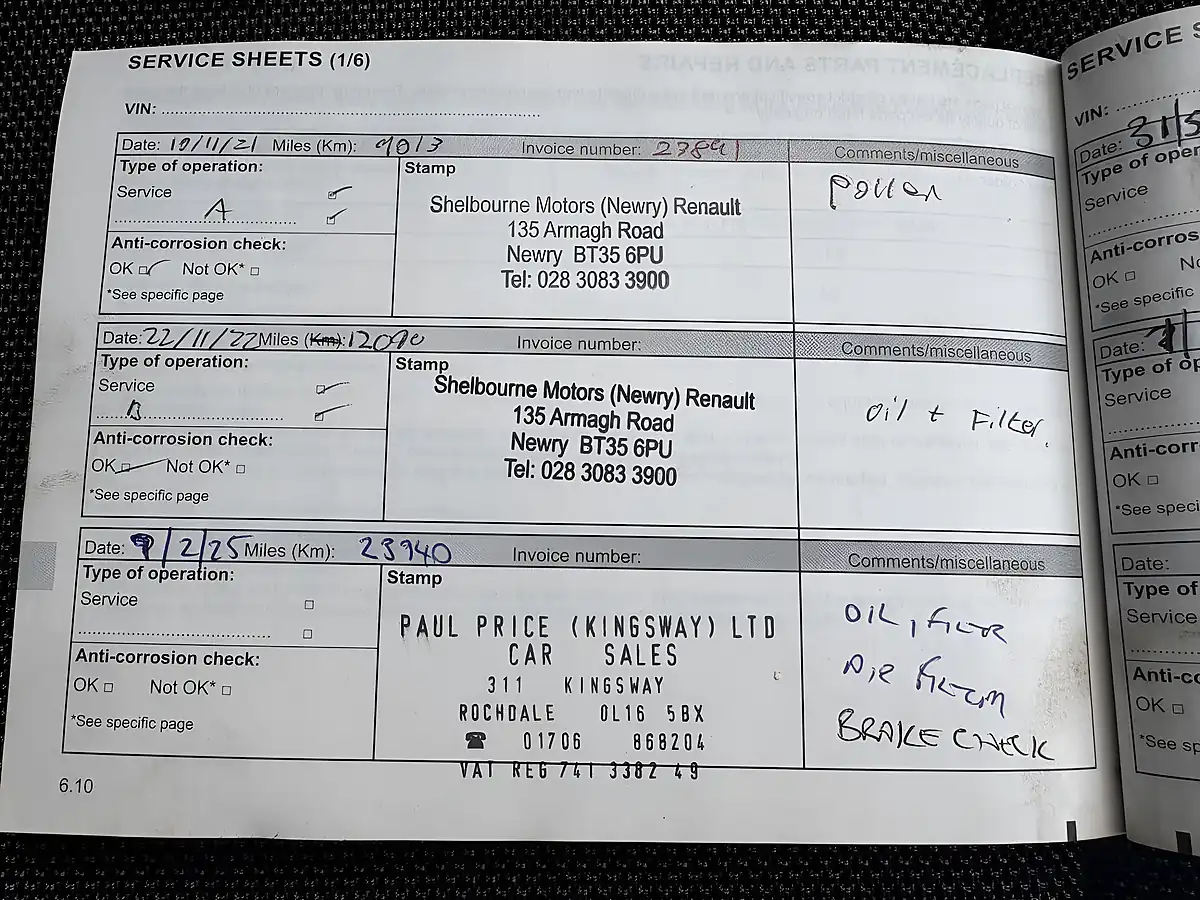 SERVICE SHEETS (1/6)
VIN:
Date: 10/11/21 Miles (Km): 9013 Invoice number: 23891 Comments/miscellaneous
Type of operation:
Service
A
Anti-corrosion check:
OK Not OK*
*See specific page
Stamp
Shelbourne Motors (Newry) Renault
135 Armagh Road
Newry BT35 6PU
Tel: 028 3083 3900
Pollen
Date: 22/11/22 Miles (Km): 12090 Invoice number: Comments/miscellaneous
Type of operation:
Service
B
Anti-corrosion check:
OK Not OK*
*See specific page
Stamp
Shelbourne Motors (Newry) Renault
135 Armagh Road
Newry BT35 6PU
Tel: 028 3083 3900
Oil + Filter.
Date: 9/2/25 Miles (Km): 23940 Invoice number: Comments/miscellaneous
Type of operation:
Service
Anti-corrosion check:
OK Not OK*
*See specific page
Stamp
PAUL PRICE (KINGSWAY) LTD
CAR SALES
311 KINGSWAY
ROCHDALE OL16 5BX
☎ 01706 868204
VAT REG 741 3382 49
OIL, FILTER
AIR FILTER
BRAKE CHECK
6.10
SERVICE
VIN:
Date: 31/
Type of
Service
Anti-corros
OK
*See specific
Date:
Type of op
Service
Anti-corr
OK
*See speci
Date:
Type of
Service
Anti-c
OK
*See sp